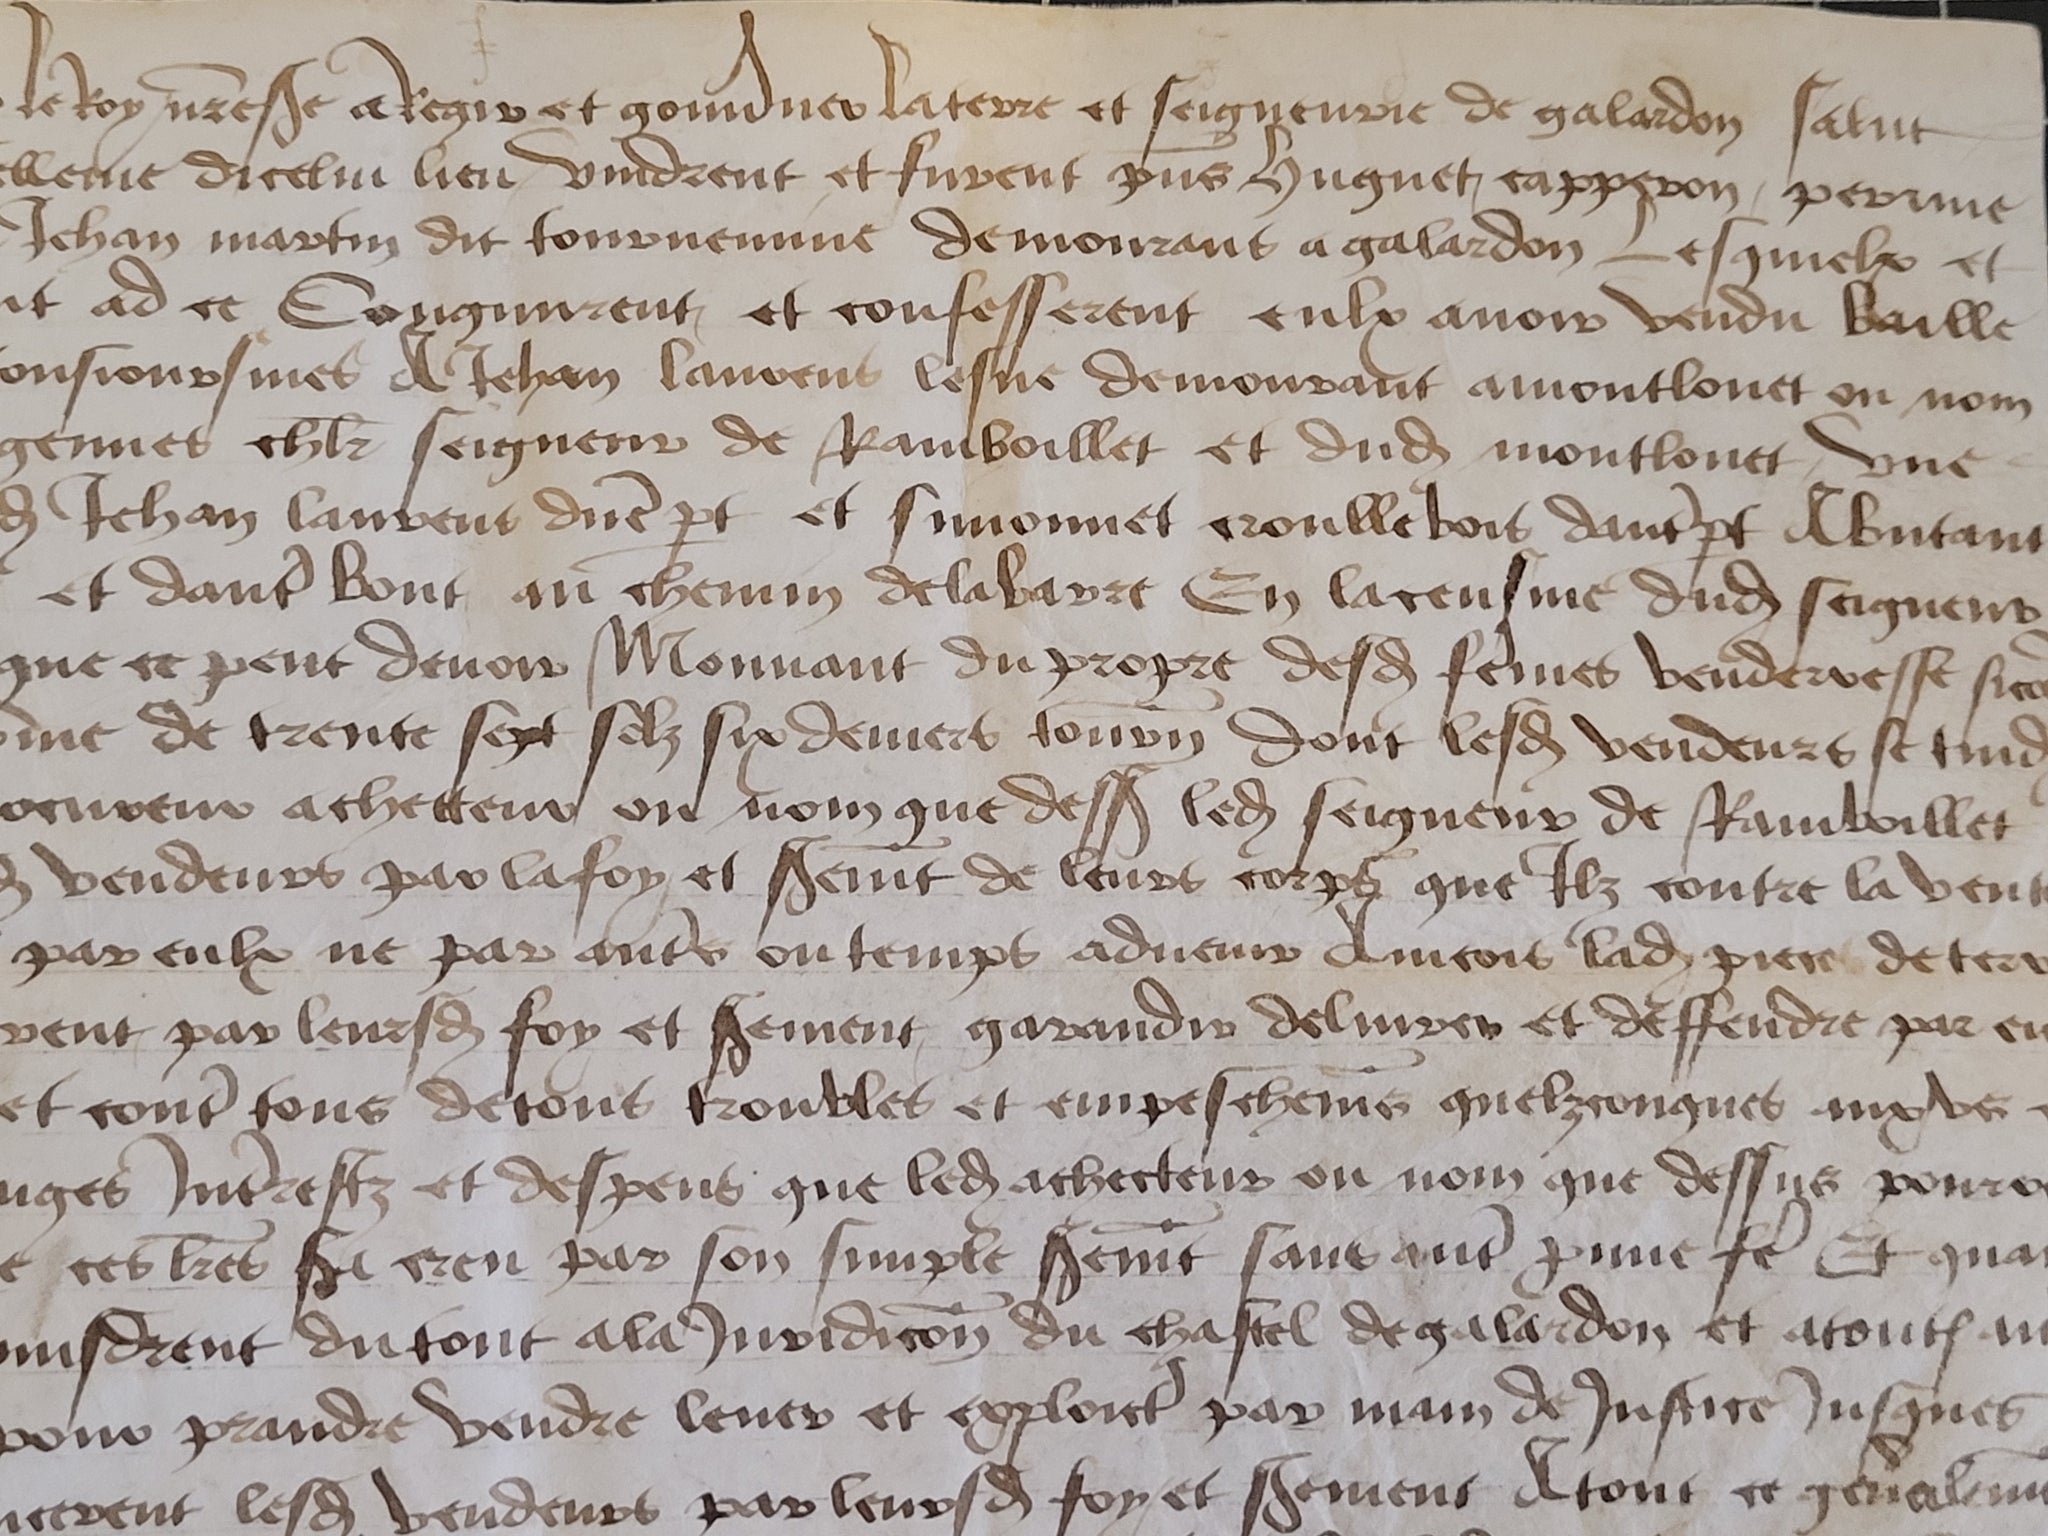 le Roy nre sse a Regir et gouvner la terre et seigneurie de galardon salut
ellerie dicelui lieu vindrent et furent pns huguet capperon perrine
Jehan martin dit tournemine demourans a galardon Lesquielx et
nt ad ce Congnurent et confesserent eulx avoir vendu baille
A Jehan laurens lesne demourant a montlouet ou nom
gennes chlr seigneur de Ramboillet et dud montlouet une
d Jehan laurens dune pt et simonnet croullebois dautr pt Abutant
et dautr bout au chemin de la barre En la censive dud seigneur
que ce peut devoir Mouvant du propre desd femes venderesse
me de trente sept solz six deniers tourn dont lesd vendeurs se tind
procureur achecteur ou nom que dess led seigneur de Ramboillet
d vendeurs par la foy et sment de leurs corps que Ilz contre la vente
par eulx ne par autrs ou temps advenir Aincois lad piece de terr
rent par leursd foy et serment garandir delivrer et deffendre par eu
et contr tous de tous troubles et empeschems quelzconques
uges Interestz et despens que led achecteur ou nom que dessus pourr
e ces lres sa creu par son simple sment sans autr pruve fe Et quan
misdrent du tout a la Juridicon du chastel de galardon et a tout au
pour prandre vendre lever et exploictr par main de Justice Jusques
nerent lesd vendeurs par leursd foy et serment A tout ce generalem